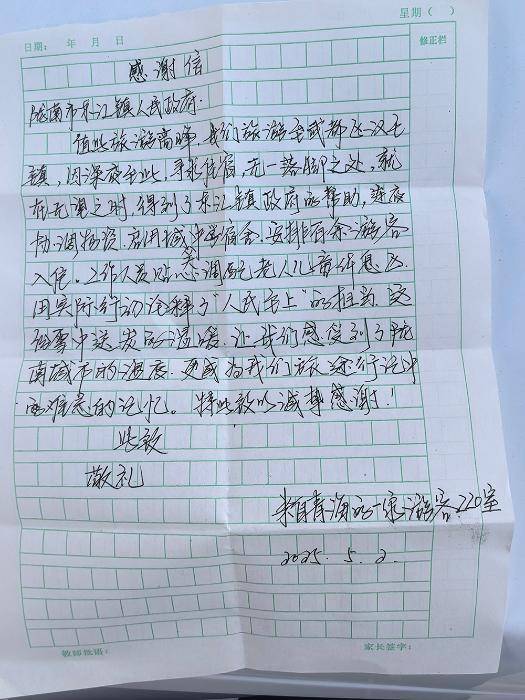 星期（ ）
日期： 年 月 日
修正栏
感谢信
陇南市东江镇人民政府.
值此旅游高峰，我们旅游至武都区汉王
镇，因深夜至此，寻找住宿，无一落脚之处，就
在无望之时，得到了东江镇政府的帮助，连夜
协调物资，启用城关中学宿舍，安排百余游客
入住。工作人员贴心调配老人儿童休息区
用实际行动诠释了"人民至上"的担当，这
份雪中送炭的温暖，让我们感受到了陇
南城市的温度，更成为我们旅途行记中
最难忘的记忆。特此致以诚挚感谢！
此致
敬礼
来自青海的一家游客.220室
2025. 5. 2.
教师批语：
家长签字：